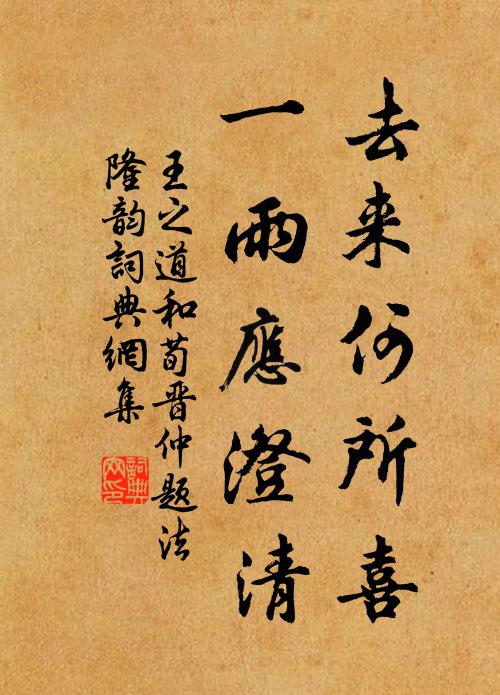 去来何所喜
一雨應澄清
王之道和荀晋仲题法
隆韵詞典網集
詞典网印